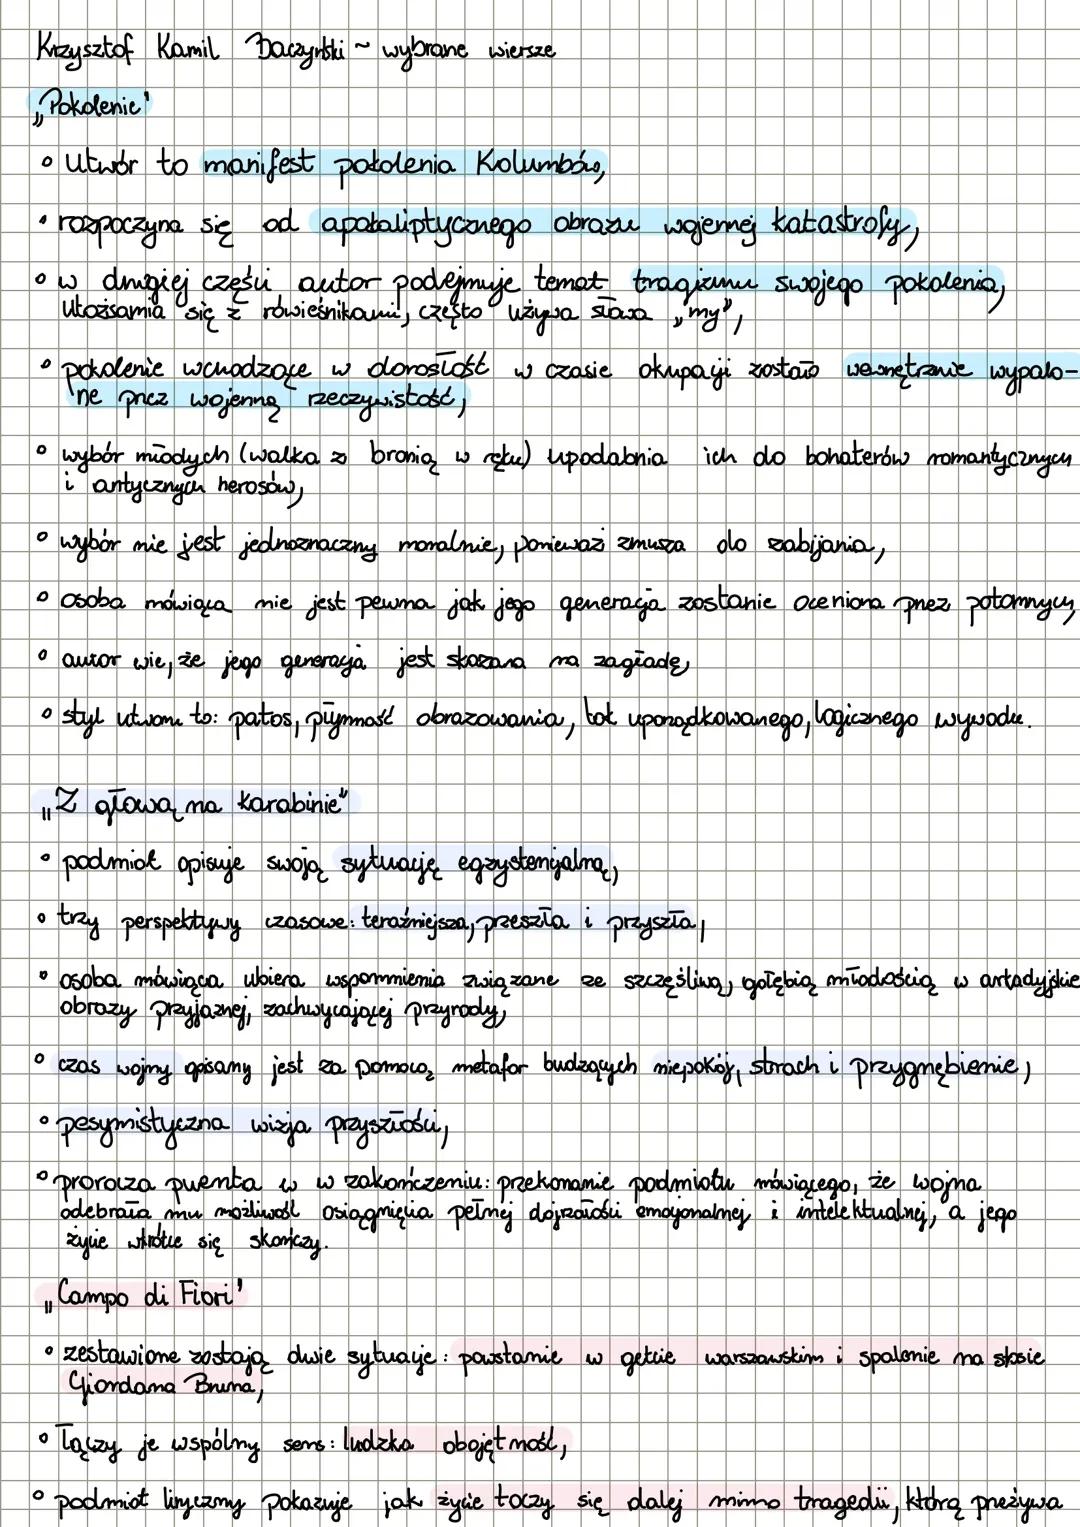 Krzysztof Kamil Baczyński ~ wybrane wiersze
„Pokolenie"
• Utwór to manifest pokolenia Kolumbów,
• rozpoczyna się od apokaliptycznego obrazu wojennej katastrofy,
• w drugiej części autor podejmuje temat tragizmu swojego pokolenia,
utożsamia się z rówieśnikami, często używa słowa „my",
• pokolenie wchodzące w dorosłość w czasie okupacji zostało wewnętrznie wypalo-
ne przez wojenną rzeczywistość,
• wybór młodych (walka z bronią w ręku) upodabnia ich do bohaterów romantycznych
i antycznych herosów,
• wybór nie jest jednoznaczny moralnie, ponieważ zmusza do zabijania,
• osoba mówiąca nie jest pewna jak jego generacja zostanie oceniona przez potomnych,
• autor wie, że jego generacja jest skazana na zagładę,
• styl utworu to: patos, płynność obrazowania, tok uporządkowanego, logicznego wywodu.
„Z głową na karabinie"
• podmiot opisuje swoją sytuację egzystencjalną,
• trzy perspektywy czasowe: teraźniejsza, przeszła i przyszła,
• osoba mówiąca ubiera wspomnienia związane ze szczęśliwą, gołębią młodością w arkadyjskie
obrazy przyjaznej, zachwycającej przyrody,
• czas wojny opisany jest za pomocą metafor budzących niepokój, strach i przygnębienie,
• pesymistyczna wizja przyszłości,
• prorocza puenta w w zakończeniu: przekonanie podmiotu mówiącego, że wojna
odebrała mu możliwość osiągnięcia pełnej dojrzałości emocjonalnej i intelektualnej, a jego
życie wkrótce się skończy.
„Campo di Fiori"
• zestawione zostają dwie sytuacje: powstanie w getcie warszawskim i spalenie na stosie
Giordana Bruna,
• Łączy je wspólny sens: ludzka obojętność,
• podmiot liryczny pokazuje jak życie toczy się dalej mimo tragedii, którą przeżywa